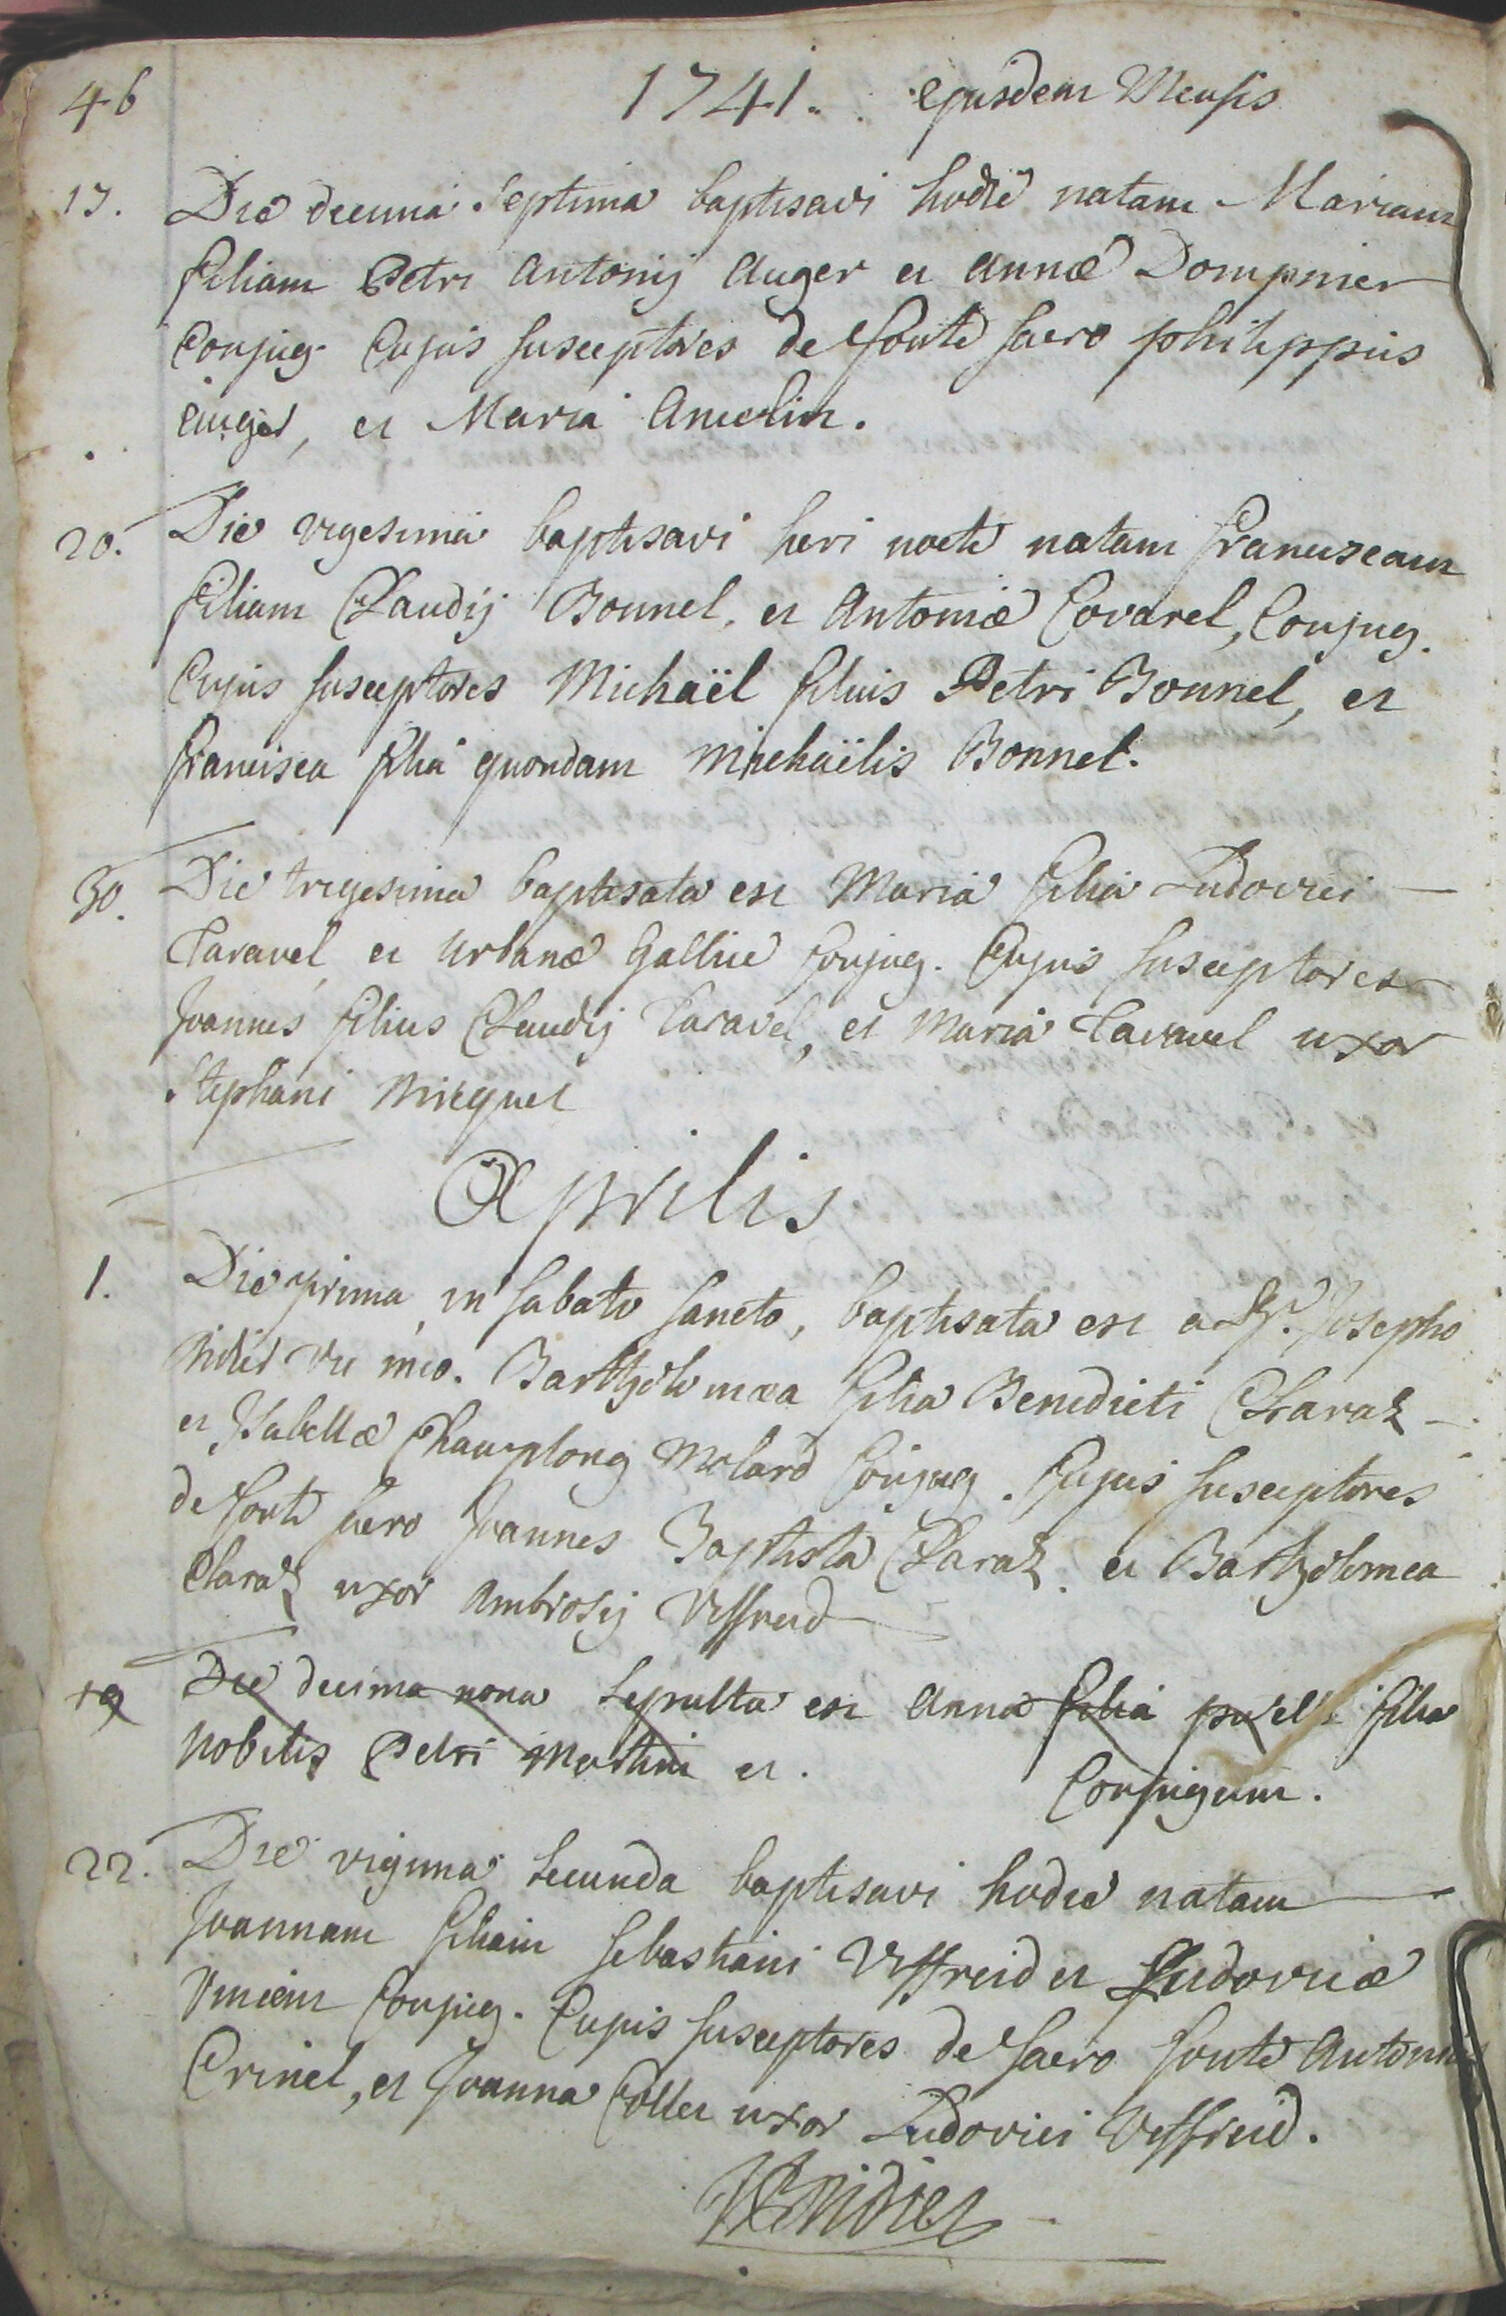 46
1741. ejusdem Mensis
17. Die decima septima baptisavi hodie natam Mariam
filiam Petri Antonij Auger et Annæ Dompnier
Conjug. Cujus susceptores de fonte sacro philippus
auger, et Maria Ancelin.
20. Die vigesima baptisavi heri nocte natam franciscam
filiam Claudij Bonnel, et Antoniæ Covarel, Conjug.
Cujus susceptores Michaël filius Petri Bonnel, et
francisca filia quondam Michaëlis Bonnel.
30. Die trigesima baptisata est Maria filia Ludovici
Taravel, et Urbanæ Gallice Conjug. Cujus susceptores
Joannes filius Claudij Taravel, et Maria Taravel uxor
Stephani Micquet
Aprilis
1. Die prima, in sabato sancto, baptisata est a Josepho
vic meo. Bartholomæa filia Benedicti Claraz
et Isabellæ Champlong Molard Conjug. Cujus susceptores
de fonte sacro Joannes Baptista Claraz et Bartholomea
Claraz uxor Ambrosij Veffreid
19 Die decima nona sepulta est Anna filia puella filia
Nobilis Petri Martini et. Conjugum.
22. Die vigima secunda baptisavi hodie natam
Joannam filiam Sebastiani Veffreid et Ludovicæ
Vincent Conjug. Cujus susceptores de sacro fonte Antonius
Crinel, et Joanna Collet uxor Ludovici Veffreid.